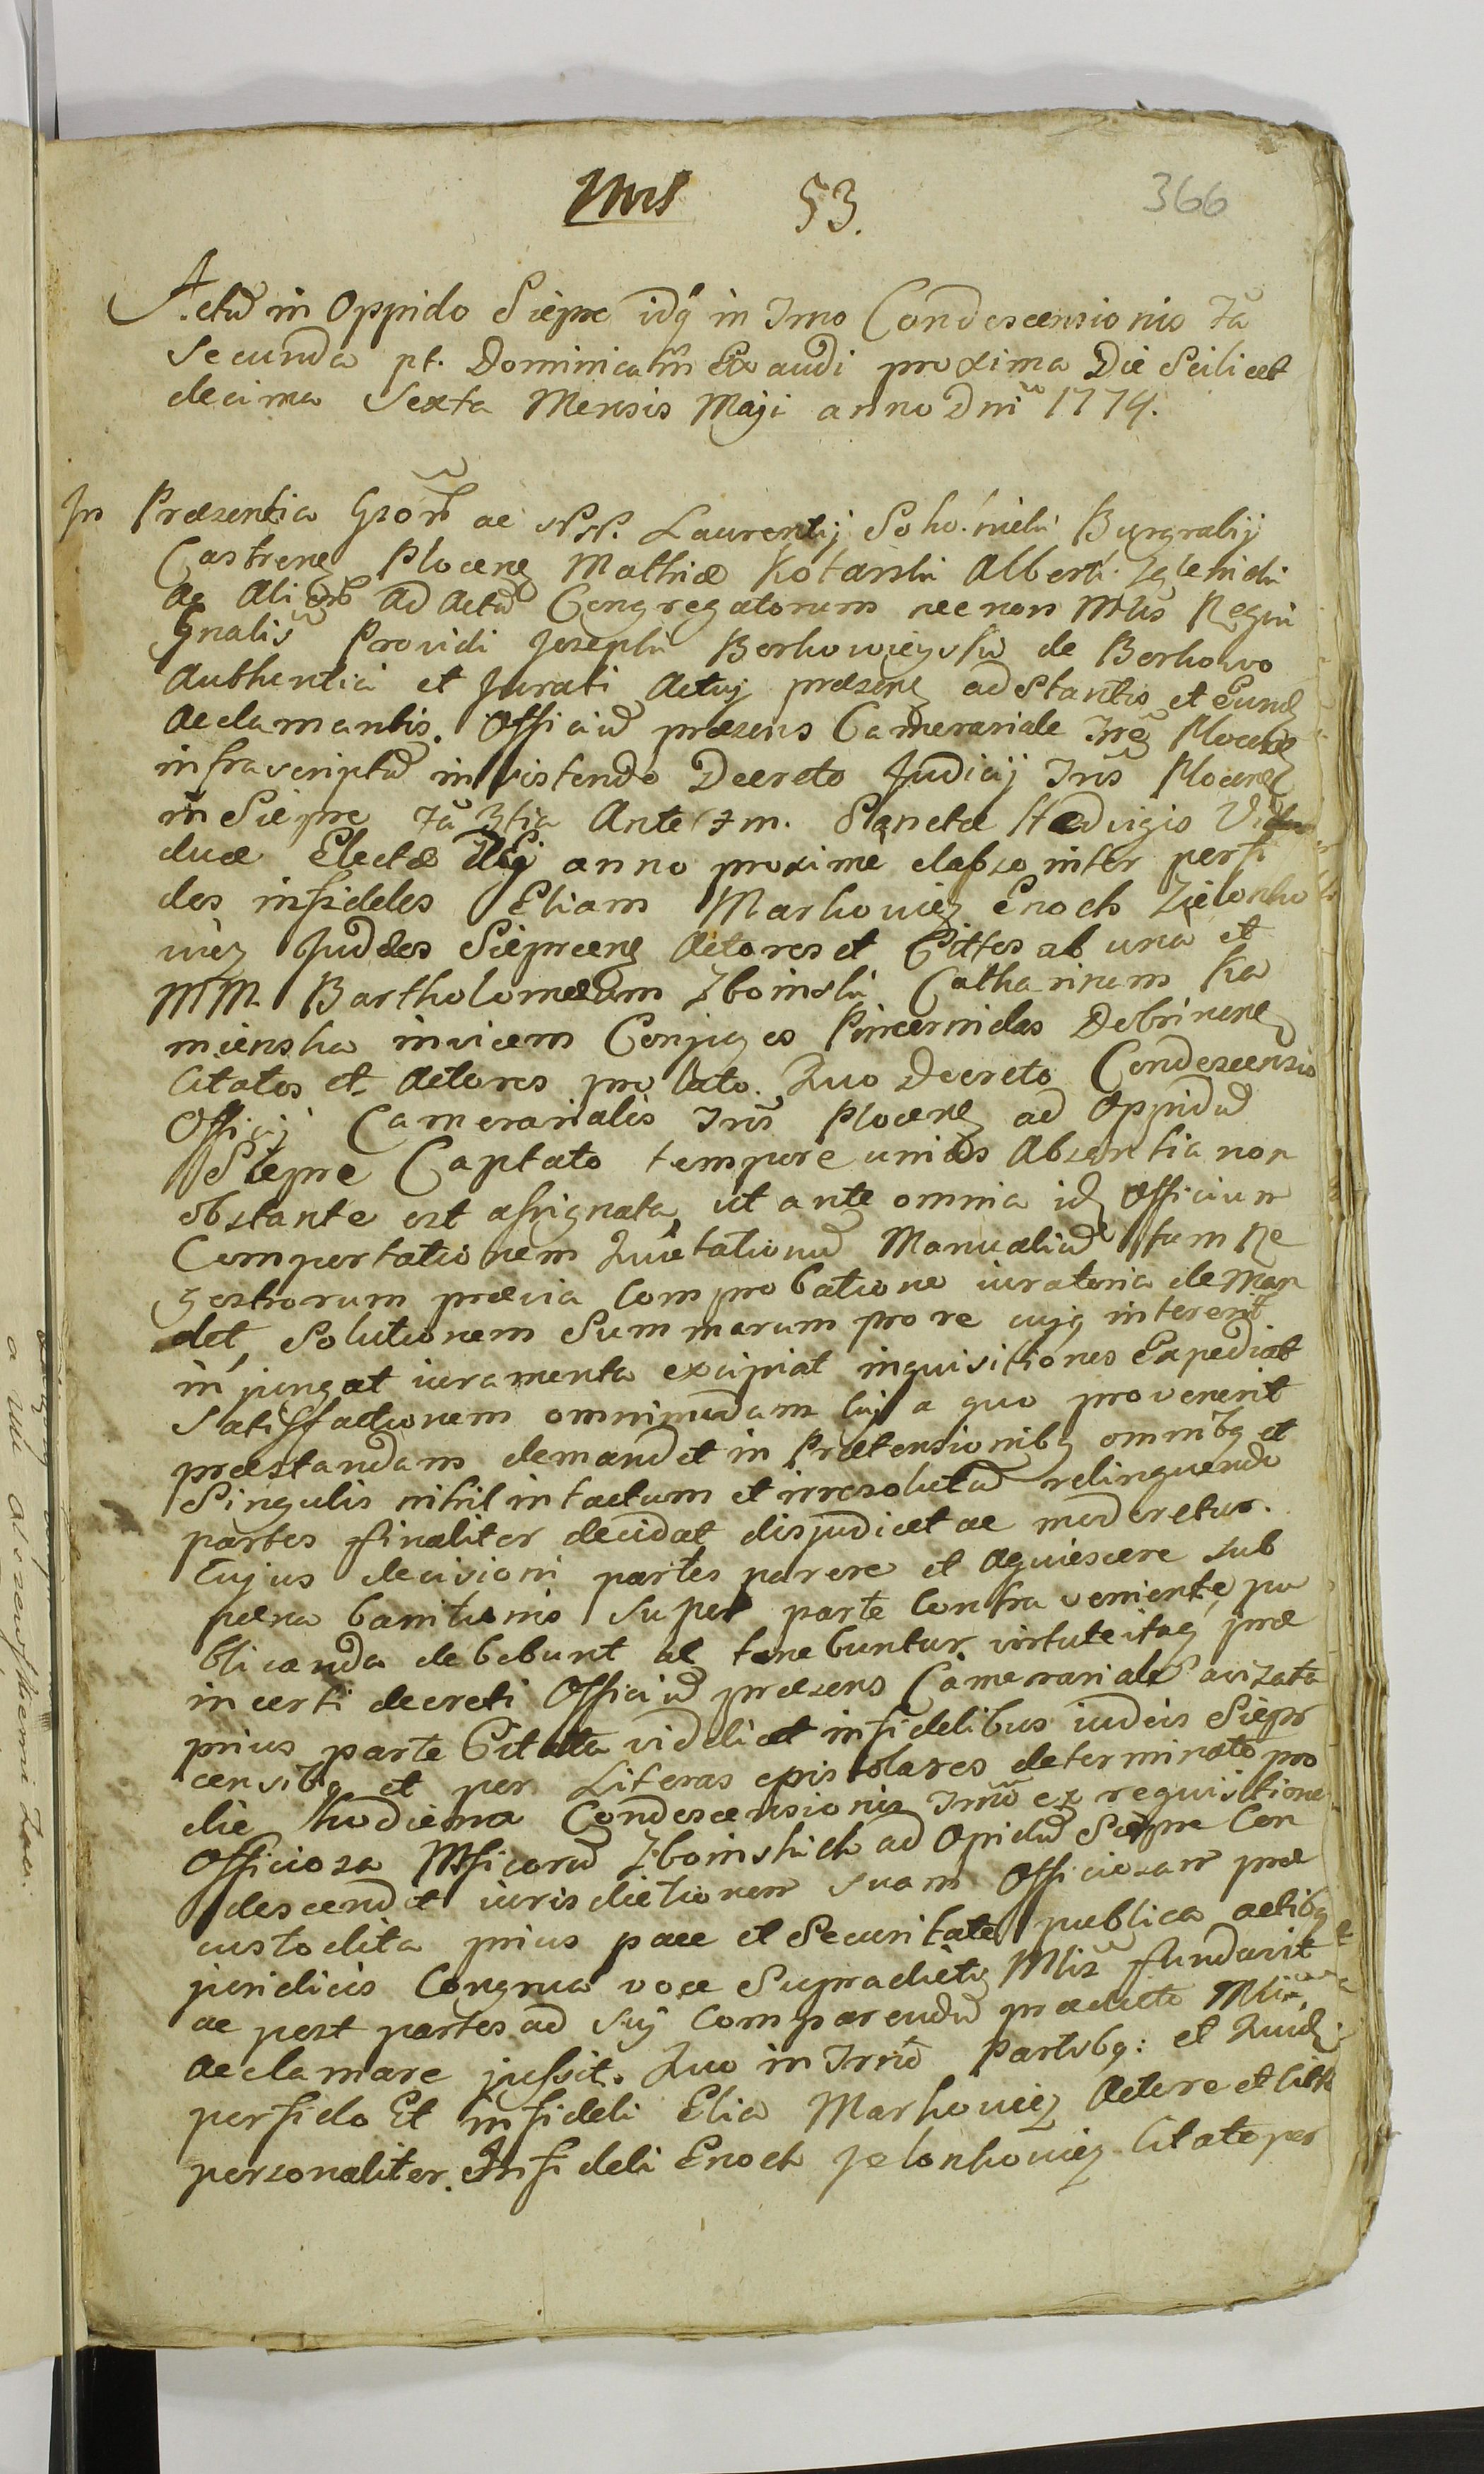 53.
366
Actū in Oppido Sieprc idq in Trno Condescensionis Fa
Secunda pt. Dominicam Exaudi proxima Die Scilicet
decima Sexta Mensis Maji anno Dni 1774.
In Præsentia Gsorū ac NN. Laurentij Burgrabij
Castrenę Plocenę Mathiæ Kotarski Alberti
ac Aliorū ad Actū Congregatorum nec non Mlis Regni
Gnalis Providi Josephi de Borkowo
Authentici et Jurati Actuj præsenę adstantis et Eundę
acclamantis. Officiū præsens Camerariale Trrę Plocenę
infrascriptū insistendo Decreto Judicij Trris Plocenę
in Sieprc Fa 3tia Ante Fm. Sanctæ Hedvigis Vi
duæ Electæ Dei anno proxime elapso inter perfi
dos infideles Eliam Markowicz Enoch Zielonko
wicz Judæos Sieprcenę Actores et Cittos ab una et
MM. Bartholomæum Zboinski Catharinam Ka
mienska invicem Conjuges Pincernidas Dobrinenę
Citatos et Actores prolato. Quo Decreto Condescensio
Officij Camerarialis Trris Plocenę ad Oppidū
Sieprc Captato tempore unius Absentia non
obstante est assignata, ut ante omnia idę Officium
Comportationem Quietationū Manualiū tum Re
gestrorum prævia comprobatione iuratoria deman
det, Solutionem Summarum pro re cujq intererit
injungat iuramenta excipiat inquisitiones Expediat
Satisfactionem omnimodam cuj a quo provenerit
præstandam demandet in Prætensionibq omnibq et
Singulis nihil intactum et irresolutū relinquendo
partes finaliter decidat disjudicet ac moderetur.
Cujus decisioni partes parere et aquiescere sub
pœna banitionis super parte contraveniente pu
blicanda debebunt ac tenebuntur virtute itaq præ
incerti decreti Officiū præsens Camerariale avizata
prius parte Citata videlicet infidelibus iudeis Siepr
censibq et per Literas epistolares determinato pro
die hodierna Condescensionis Trnō ex requisitione
Officiosa Mficorū Zboinskich ad Opidū Sieprc Con
descendit iurisdictionem suam Officiosam præ
custodita prius pace et Securitate publica actibq
juridicis Congrua voce Supradicti Mlis fundavit
ac post partes ad Sui Comparendū prædicto Mli
acclamare jussit. Quo in Trnō Partibq: et Quidę
perfido Et infideli Elia Markowicz Actore et Citto
personaliter. Infideli Enoch Jelonkowicz Citato per